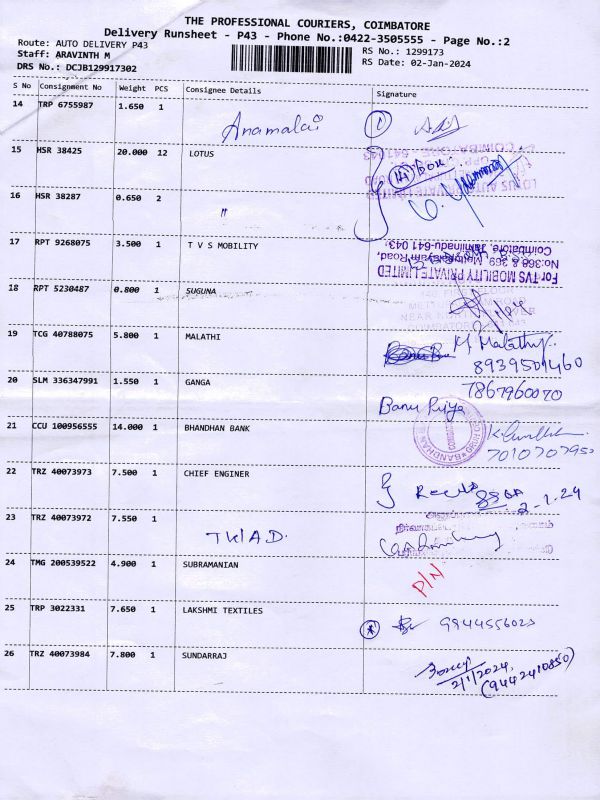 THE PROFESSIONAL COURIERS, COIMBATORE
Delivery Runsheet - P43 - Phone No.:0422-3505555 - Page No.:2
Route: AUTO DELIVERY P43
RS No.: 1299173
Staff: ARAVINTH M
RS Date: 02-Jan-2024
DRS No.: DCJB129917302
S No Consignment No Weight PCS Consignee Details Signature
14 TRP 6755987 1.650 1 Anamalai 1
15 HSR 38425 20.000 12 LOTUS
14 box
16 HSR 38287 0.650 2 "
17 RPT 9268075 3.500 1 T V S MOBILITY
For TVS MOBILITY PRIVATE LIMITED
No:368 & 369, Mettupalayam Road,
Coimbatore, Tamilnadu-641 043.
18 RPT 5230487 0.800 1 SUGUNA
19 TCG 40788075 5.800 1 MALATHI
K Malathy
8939501460
20 SLM 336347991 1.550 1 GANGA
7867960070
Banu Priya
21 CCU 100956555 14.000 1 BHANDHAN BANK
7010707950
22 TRZ 40073973 7.500 1 CHIEF ENGINER
2-1.24
23 TRZ 40073972 7.550 1
24 TMG 200539522 4.900 1 SUBRAMANIAN P/N
25 TRP 3022331 7.650 1 LAKSHMI TEXTILES
26 TRZ 40073984 7.800 1 SUNDARRAJ
2/1/2024,
(9442410850)